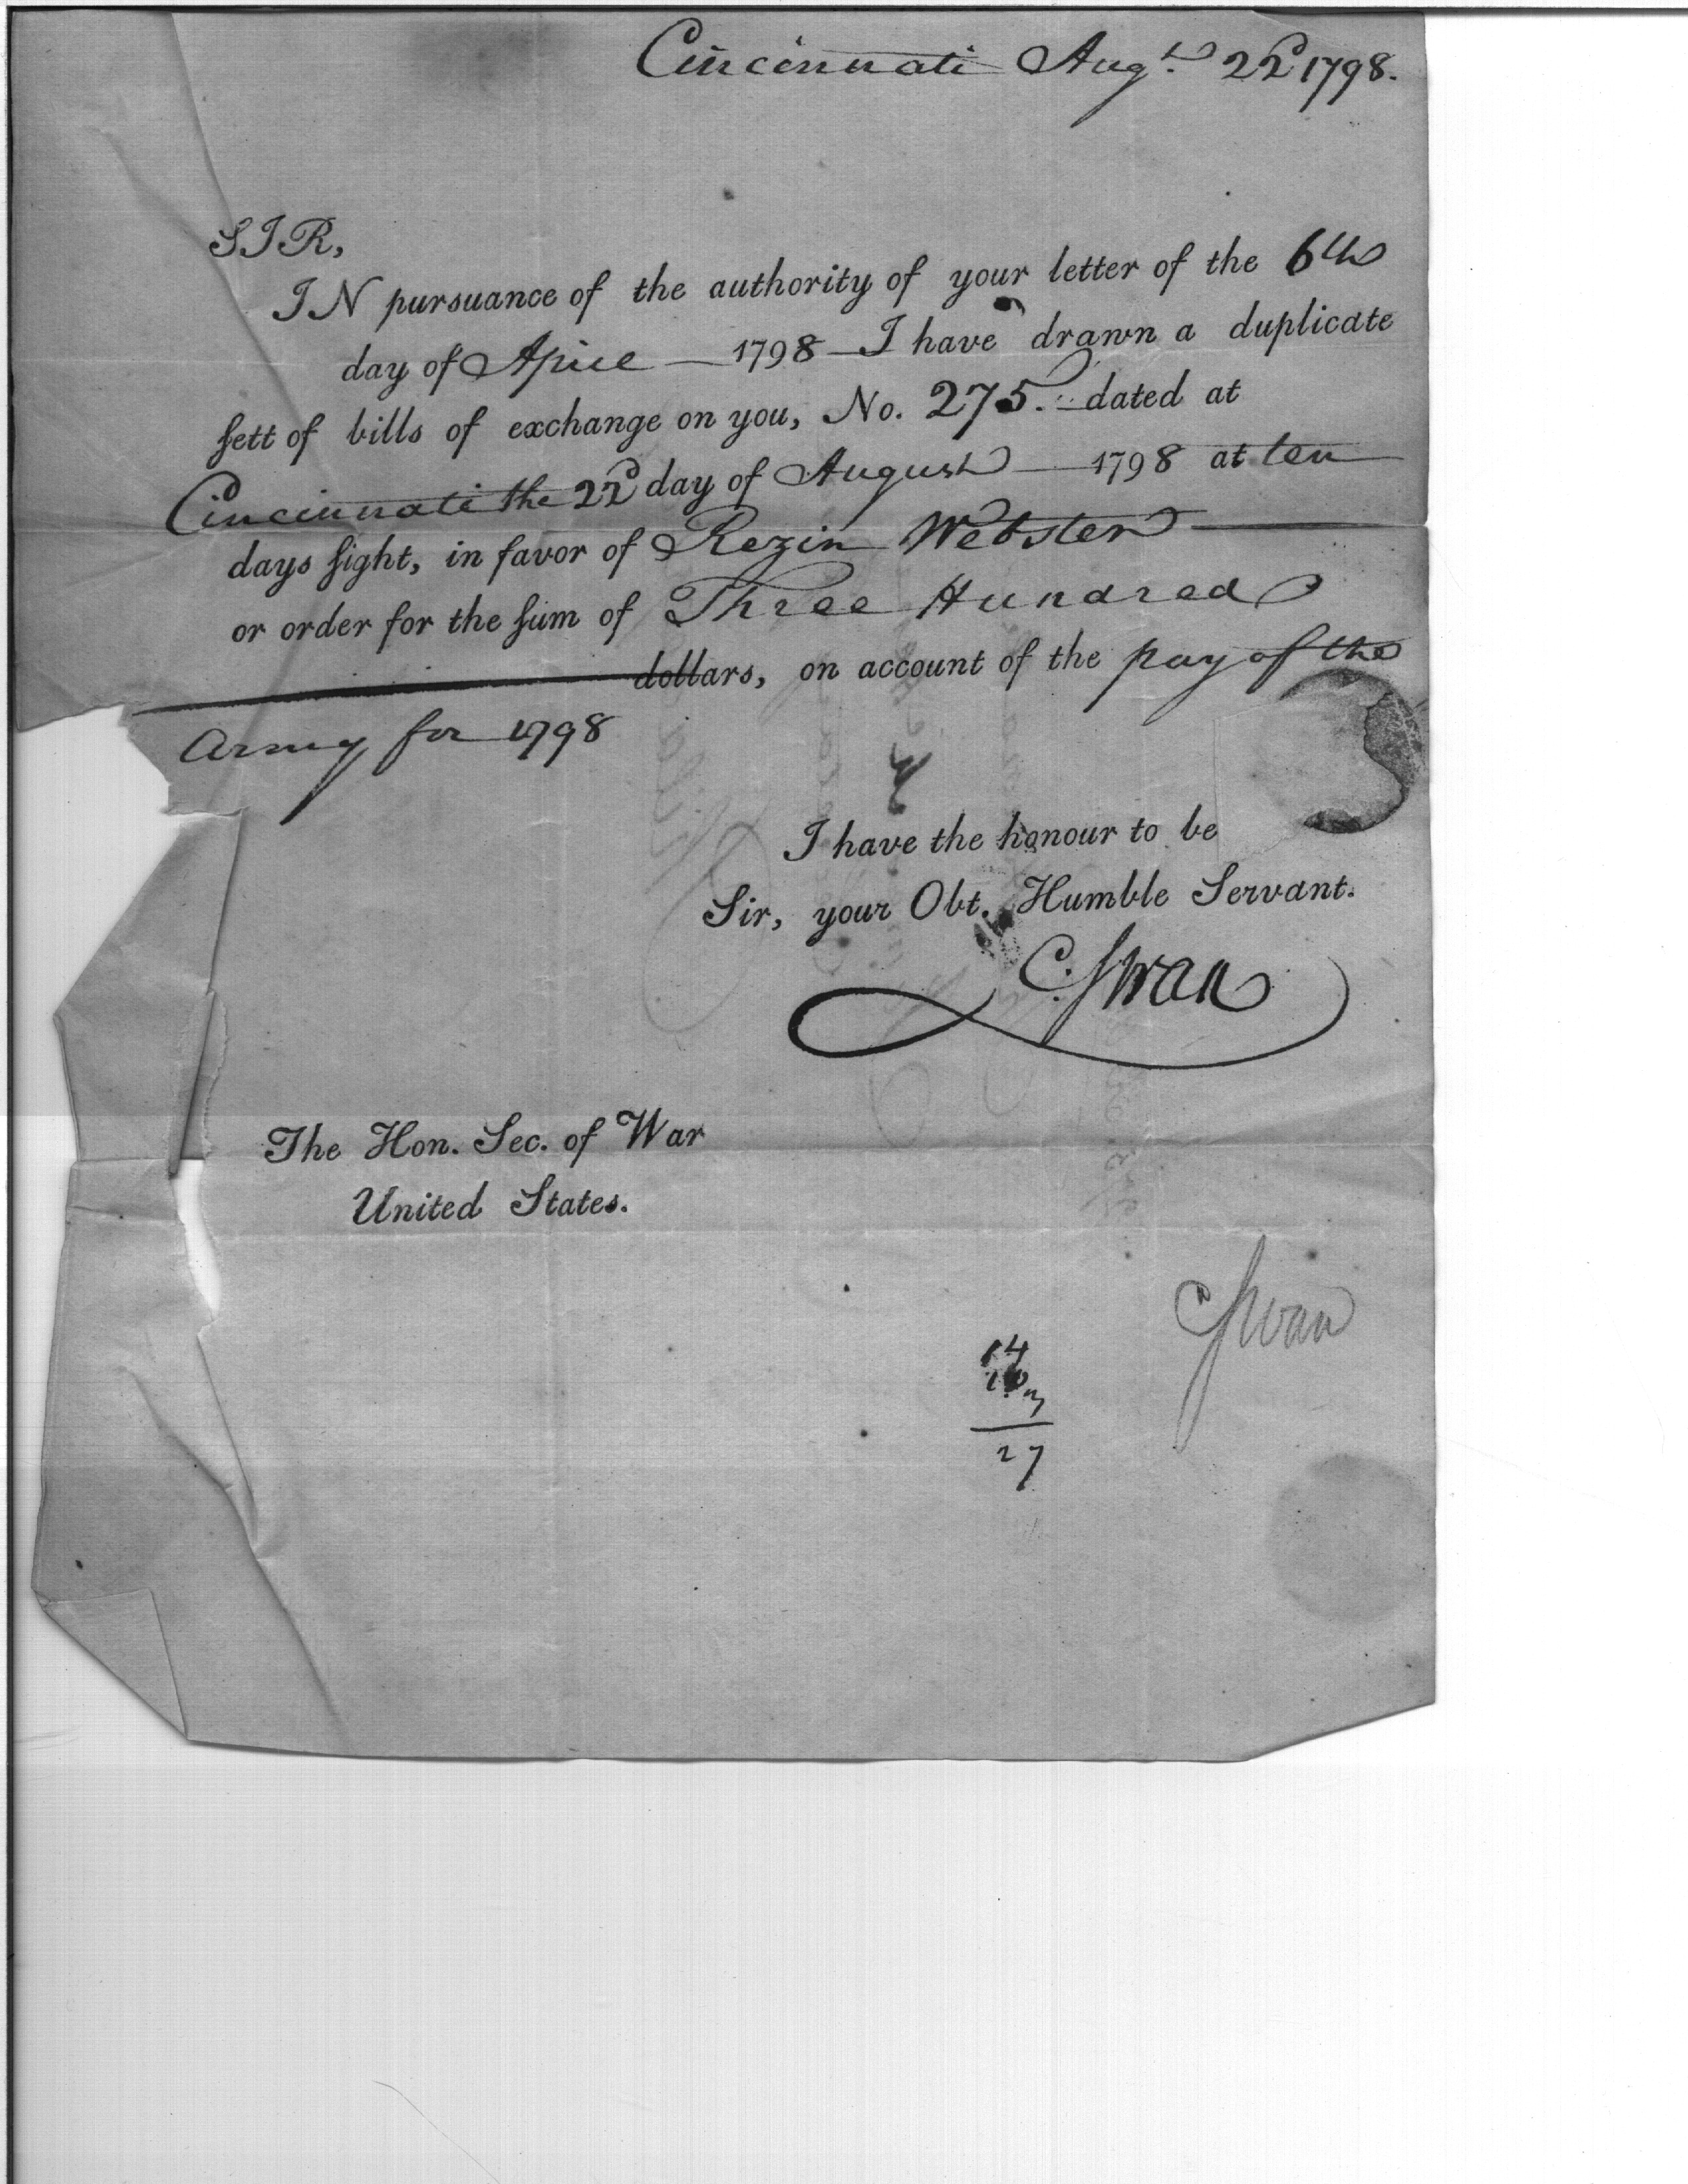 Cincinnati Augt. 22d 1798.
SIR,
IN pursuance of the authority of your letter of the 6th
day of April 1798 I have drawn a duplicate
sett of bills of exchange on you, No. 275. dated at
Cincinnati the 22d day of August 1798 at ten
days sight, in favor of Rezin Webster
or order for the sum of Three Hundred
dollars, on account of the pay of the
Army for 1798
I have the honour to be
Sir, your Obt. Humble Servant.
C. Swan
The Hon. Sec. of War
United States.
C Swan
14
27